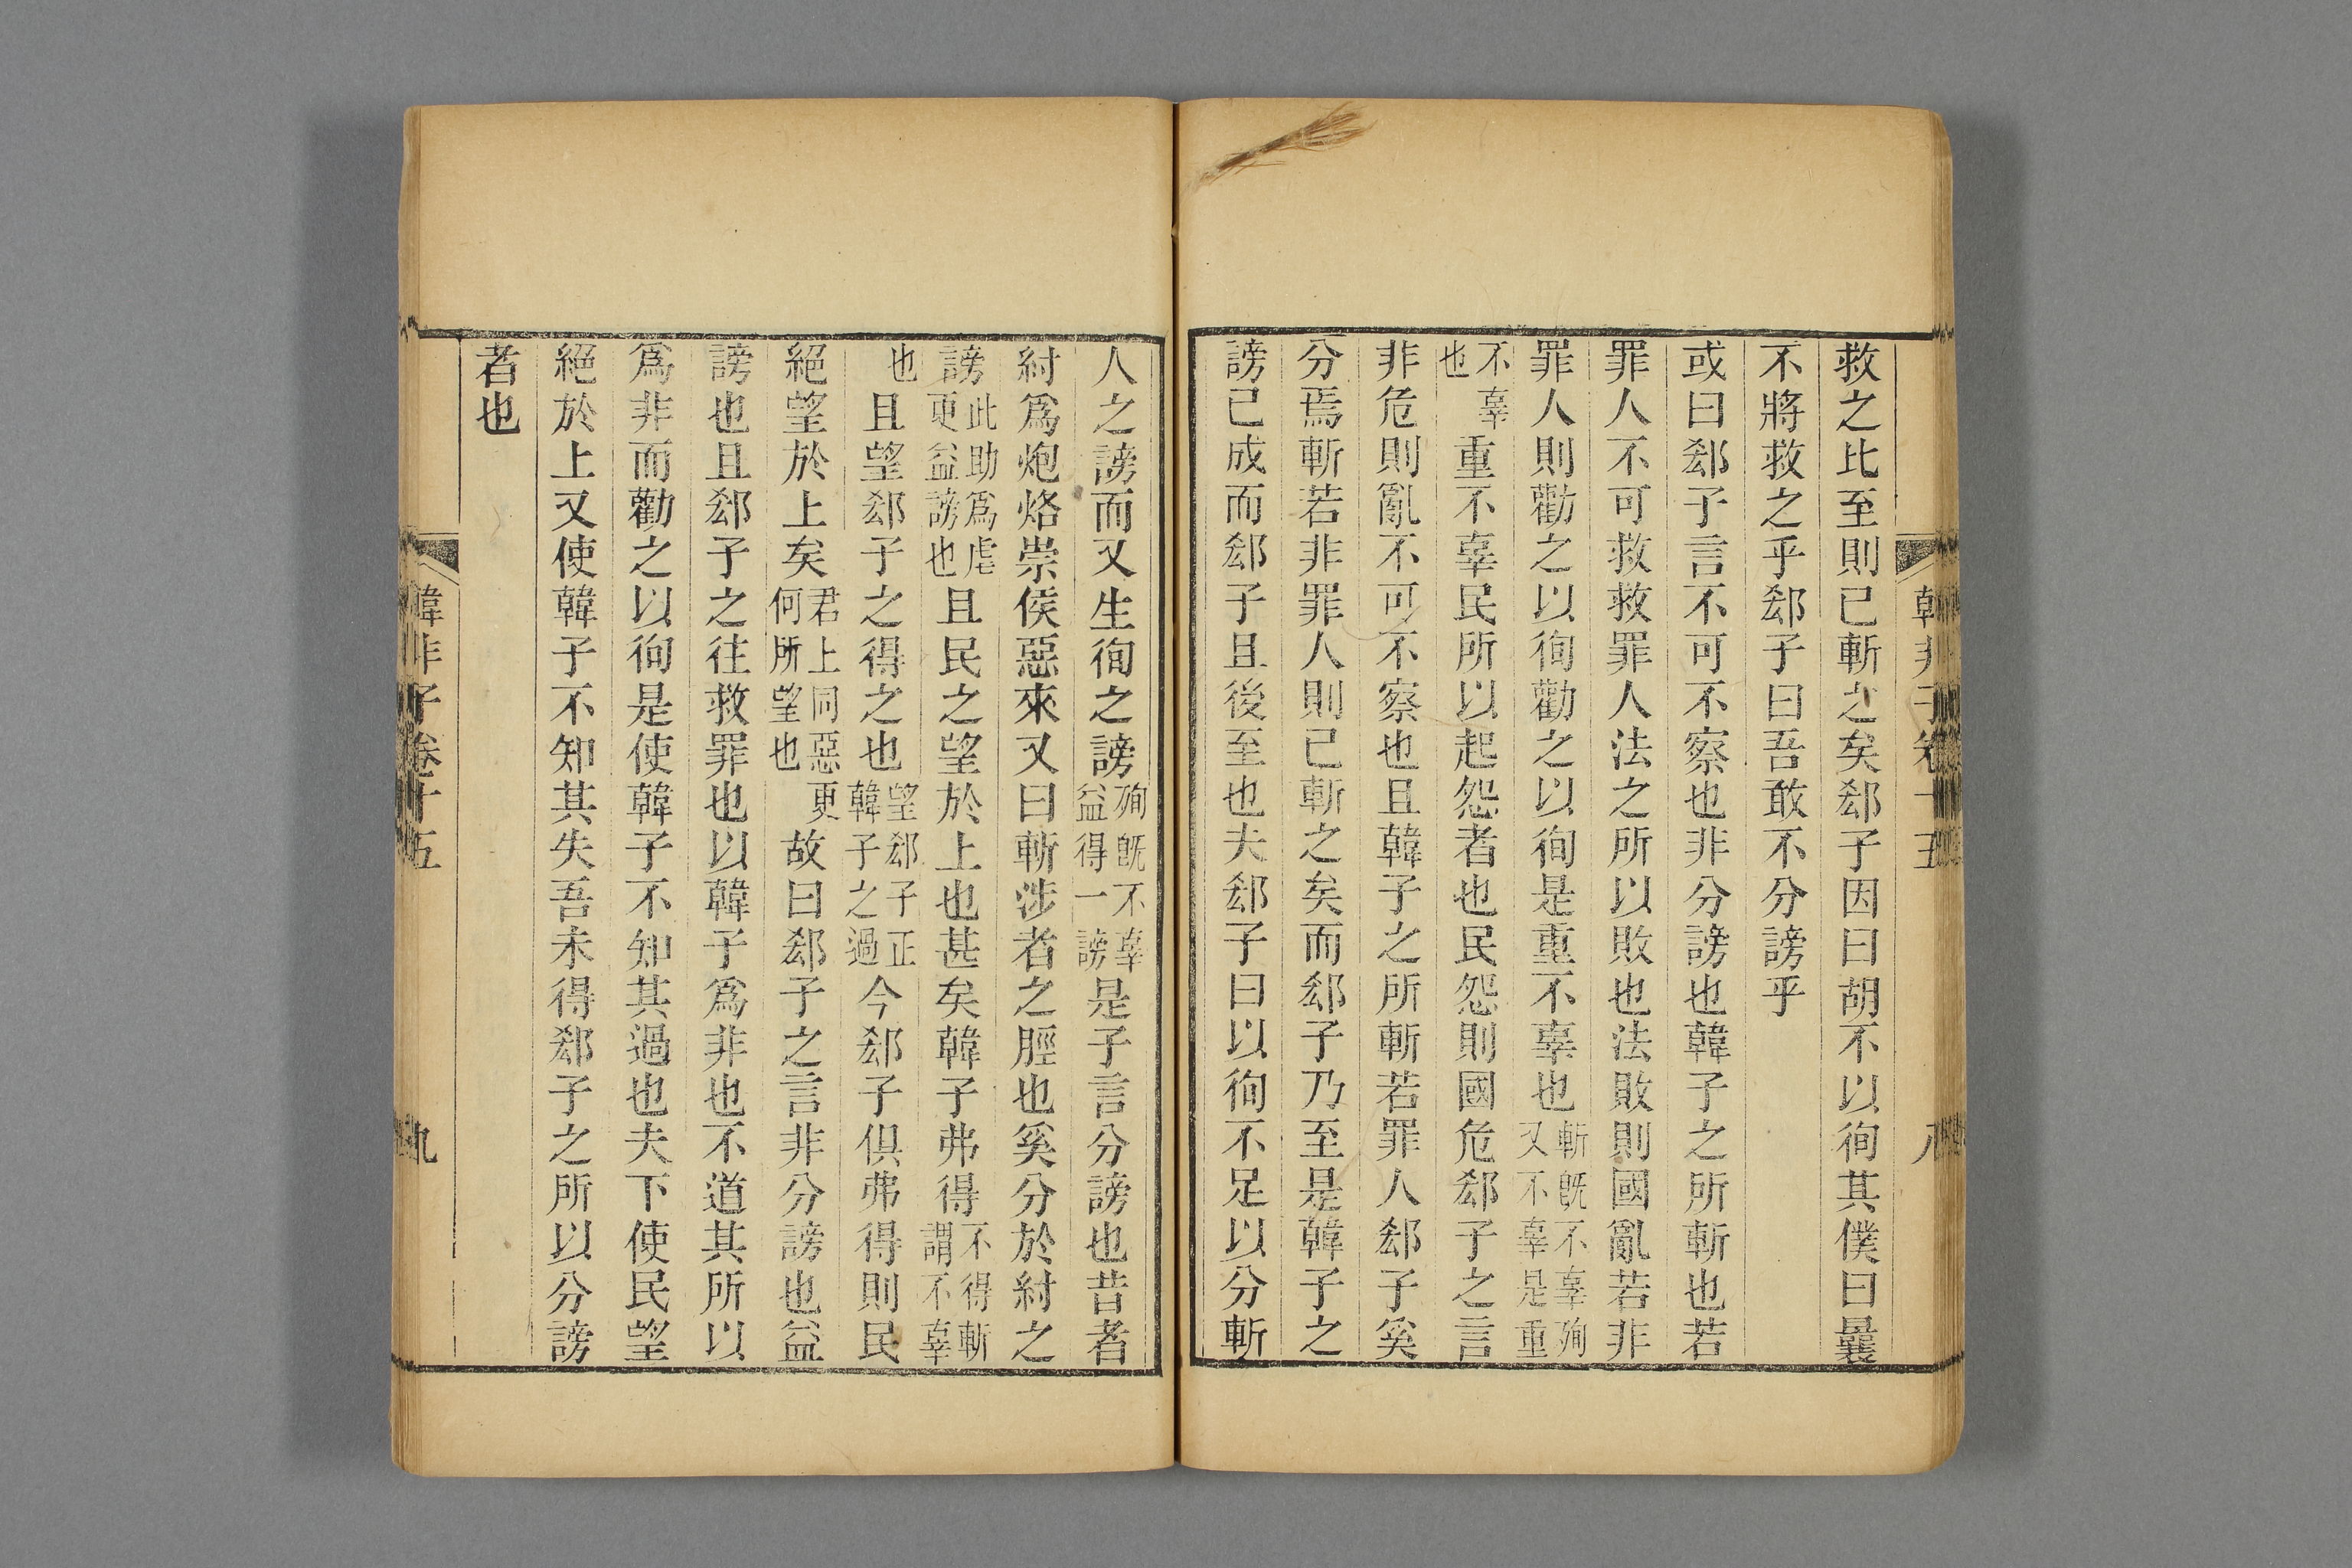 韓非子卷十五
八
救之比至則已斬之矣郄子因曰胡不以徇其僕曰曩
不將救之乎郄子曰吾敢不分謗乎
或曰郄子言不可不察也非分謗也韓子之所斬也若
罪人不可救救罪人法之所以敗也法敗則國亂若非
罪人則勸之以徇勸之以徇是重不辜也斬旣不辜殉又不辜是重
不辜也重不辜民所以起怨者也民怨則國危郄子之言
非危則亂不可不察也且韓子之所斬若罪人郄子奚
分焉斬若非罪人則已斬之矣而郄子乃至是韓子之
謗已成而郄子且後至也夫郄子曰以徇不足以分斬
人之謗而又生徇之謗殉旣不辜益得一謗是子言分謗也昔者
紂爲炮烙崇侯惡來又曰斬涉者之脛也奚分於紂之
謗此助爲虐更益謗也且民之望於上也甚矣韓子弗得不得斬謂不辜
也且望郄子之得之也望郄子正韓子之過今郄子俱弗得則民
絕望於上矣君上同惡更何所望也故曰郄子之言非分謗也益
謗也且郄子之往救罪也以韓子爲非也不道其所以
爲非而勸之以徇是使韓子不知其過也夫下使民望
絕於上又使韓子不知其失吾未得郄子之所以分謗
者也
韓非子卷十五
九